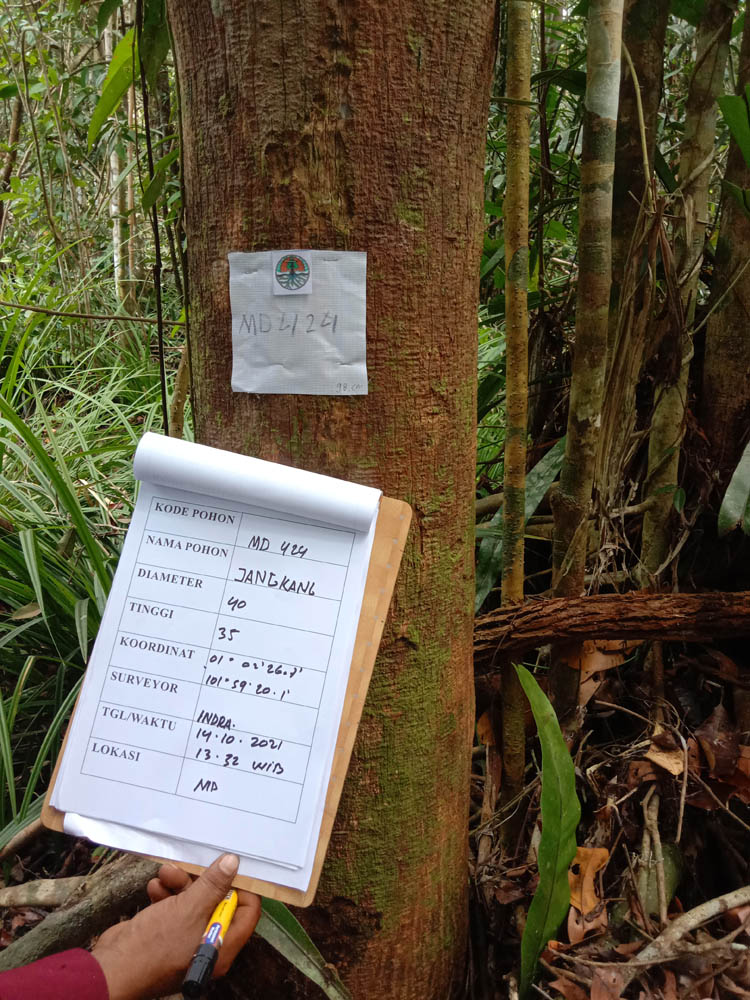 MD 424
98.cm
KODE POHON MD 424
NAMA POHON JANGKANG
DIAMETER 40
TINGGI 35
KOORDINAT 01° 02'26.7'
101°59'20.1'
SURVEYOR INDRA.
TGL/WAKTU 14.10.2021
13.32 WIB
LOKASI MD